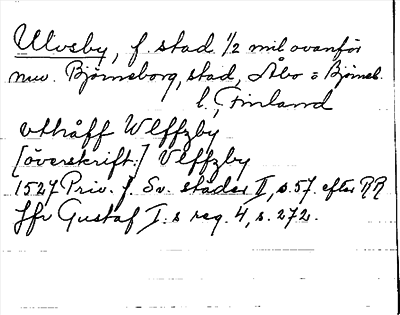 Ulvsby, f. stad 1/2 mil ovanför
nuv. Björneborg, stad, Åbo = Björneb.
l., Finland
vthåff Wlffzby
[överskrift:] Vlffzby
1527 Priv. f. Sv. städer II, s. 57. efter RR
Jfr Gustaf I:s reg. 4, s. 272.